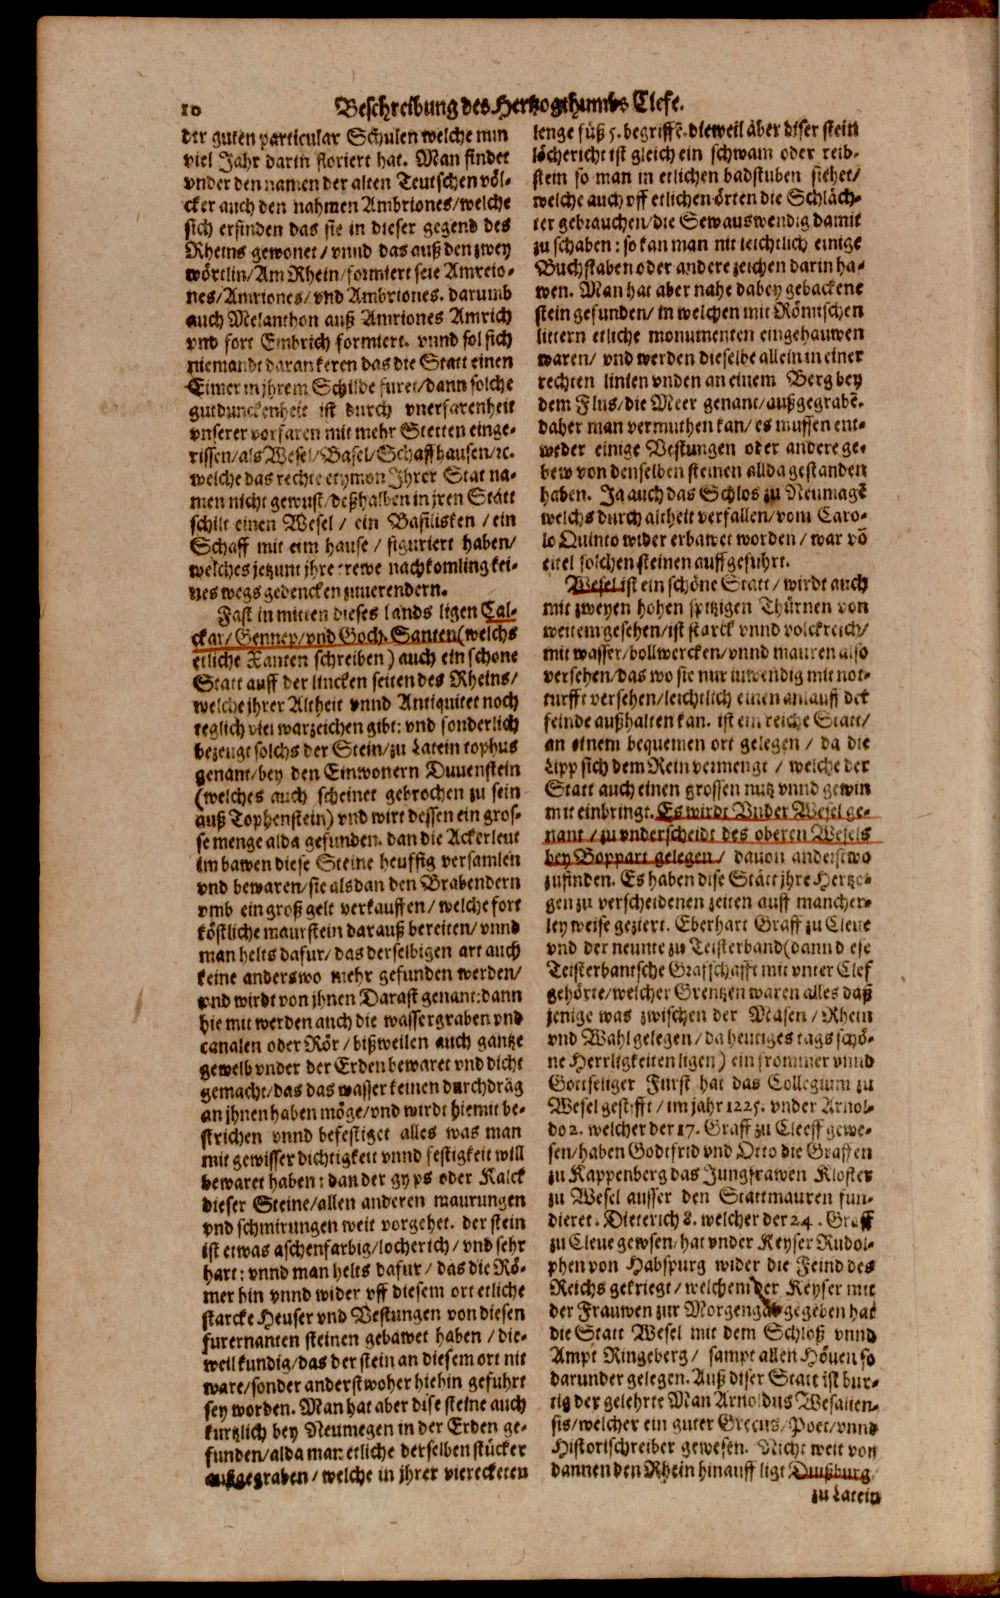 10 Beschreibung des Hertzogthumbs Clefe.
der guten particular Schulen welche nun
viel Jahr darin floriert hat. Man findet
vnder den namen der alten Teutschen völ-
cker auch den nahmen Ambriones/welche
sich erfinden das sie in dieser gegend des
Rheins gewonet/vnnd das auß den zwey
wörtlin/Am Rhein/formiert seie Amreio-
nes/Amriones/vnd Ambriones. darumb
auch Melanthon auß Amriones Amrich
vnd fort Embrich formiert. vnnd sol sich
niemandt daran keren das die Statt einen
Eimer in jhrem Schilde furet/dann solche
gutdunckenheit ist durch vnerfarenheit
vnserer vorfaren mit mehr Stetten einge-
rissen/als Wesel/Basel/Schaffhausen/ꝛc.
welche das rechte etymon Jhrer Stat na-
men nicht gewust/deßhalben in jren Statt
schilt einen Wesel / ein Basilisken / ein
Schaff mit eim hause / figuriert haben/
welches jetzunt jhre trewe nachkomling kei-
nes wegs gedencken zuuerendern.
Fast in mitten dieses lands ligen Cal-
ckar/Gennep/vnd Goch. Santen(welchs
etliche Xanten schreiben) auch ein schone
Statt auff der lincken seiten des Rheins/
welche jhrer Altheit vnnd Antiquitet noch
teglich viel warzeichen gibt: vnd sonderlich
bezeugt solchs der Stein/zu Latein tophus
genant/bey den Einwonern Duuenstein
(welches auch scheinet gebrochen zu sein
auß Tophenstein) vnd wirt dessen ein gros-
se menge alda gefunden. dan die Ackerleut
im bawen diese Steine heuffig versamlen
vnd bewaren/sie alsdan den Brabendern
vmb ein groß gelt verkauffen/welche fort
köstliche maurstein darauß bereiten/vnnd
man helts dafur/das derselbigen art auch
keine anderswo mehr gefunden werden/
vnd wirdt von jhnen Darast genant: dann
hie mit werden auch die wassergraben vnd
canalen oder Rör / bißweilen auch gantze
gewelb vnder der Erden bewaret vnd dicht
gemacht/das das wasser keinen durchdräg
an jhnen haben möge/vnd wirdt hiemit be-
strichen vnnd befestiget alles was man
mit gewisser dichtigkeit vnnd festigkeit will
bewaret haben: dan der gyps oder Kalck
dieser Steine/allen anderen maurungen
vnd schmirungen weit vorgehet. der stein
ist etwas aschenfarbig/locherich/vnd sehr
hart: vnnd man helts dafur / das die Rö-
mer hin vnnd wider vff diesem ort etliche
starcke Heuser vnd Vestungen von diesen
furernanten steinen gebawet haben / die-
weil kundig/das der stein an diesem ort nit
ware/sonder anderstwoher hiehin gefuhrt
sey worden. Man hat aber dise steine auch
kurtzlich bey Neumegen in der Erden ge-
funden/alda man etliche derselben stücker
außgegraben/welche in jhrer vierecketen
lenge füß 5. begriffẽ. dieweil aber diser stein
löchericht ist gleich ein schwam oder reib-
stein so man in etlichen badstuben siehet/
welche auch vff etlichen örten die Schläch-
ter gebrauchen/die Sew auswendig damit
zu schaben: so kan man nit leichtlich einige
Buchstaben oder andere zeichen darin ha-
wen. Man hat aber nahe dabey gebackene
stein gefunden/ in welchen mit Römischen
littern etliche monumenten eingehauwen
waren/ vnd werden dieselbe allein in einer
rechten linien vnden an einem Berg bey
dem Flus/die Meer genant/außgegrabẽ.
daher man vermuthen kan/es mussen ent-
weder einige Vestungen oder andere ge-
bew von denselben steinen allda gestanden
haben. Ja auch das Schlos zu Neumagẽ
welchs durch altheit verfallen/vom Caro-
lo Quinto wider erbawet worden / war võ
eitel solchen steinen auffgefuhrt.
Wesel ist ein schöne Statt / wirdt auch
mit zweyen hohen spitzigen Thürnen von
weitem gesehen/ist starck vnnd volckreich/
mit wasser/bollwercken/vnnd mauren also
versehen/das wo sie nur inwendig mit not-
turfft versehen/leichtlich einen anlauff der
feinde außhalten kan. ist ein reiche Statt/
an einem bequemen ort gelegen / da die
Lipp sich dem Rein vermengt / welche der
Statt auch einen grossen nutz vnnd gewin
mit einbringt. Es wirdt Vnder Wesel ge-
nant / zu vnderscheidt des oberen Wesels
bey Boppart gelegen / dauon anderstwo
zufinden. Es haben dise Stätt jhre Hertzo-
gen zu verscheidenen zeiten auff mancher-
ley weise geziert. Eberhart Graff zu Cleue
vnd der neunte zu Teisterband(dann diese
Teisterbantsche Grafschafft mit vnter Clef
gehörte/welcher Grentzen waren alles daß
jenige was zwischen der Masen / Rhein
vnd Wahl gelegen / da heutiges tags schö-
ne Herrligkeiten ligen) ein frommer vnnd
Gottseliger Furst hat das Collegium zu
Wesel gestifft / im jahr 1225. vnder Arnol-
do 2. welcher der 17. Graff zu Cleeff gewe-
sen/haben Godtfrid vnd Otto die Graffen
zu Kappenberg das Jungfrawen Kloster
zu Wesel ausser den Stattmauren fun-
dieret. Dieterich 8. welcher der 24. Graff
zu Cleue gewsen/hat vnder Keyser Rudol-
phen von Habspurg wider die Feind des
Reichs gekriegt / welchem der Keyser mit
der Frauwen zur Morgengab gegeben hat
die Statt Wesel mit dem Schloß vnnd
Ampt Ringeberg / sampt allen Höuen so
darunder gelegen. Auß diser Statt ist bur-
tig der gelehrte Man Arnoldus Wesalien-
sis/welcher ein guter Grecus/Poet/vnnd
Historischreiber gewesen. Nicht weit von
dannen den Rhein hinauff ligt Dußburg/
zu Latein